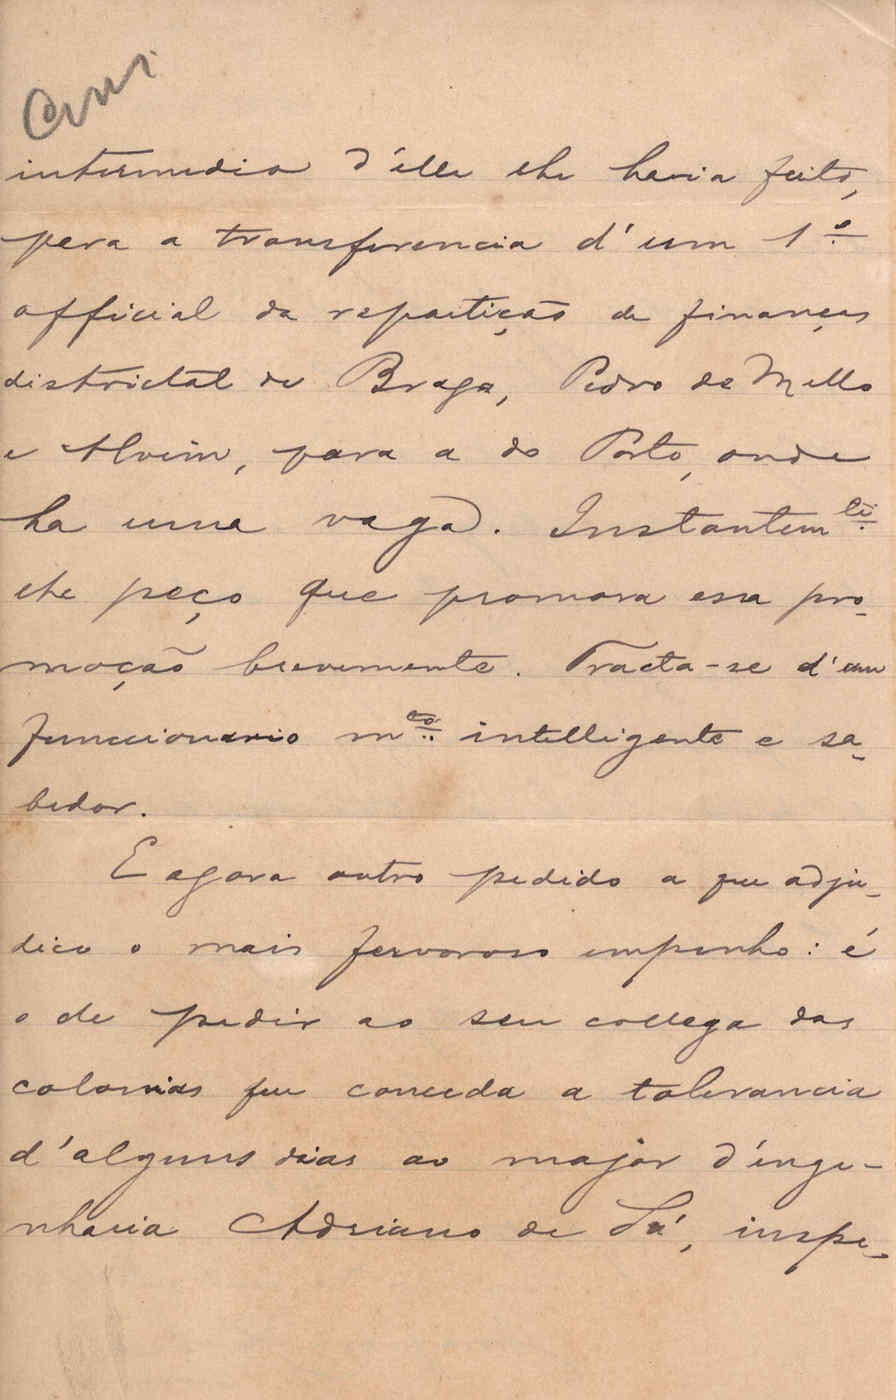 intermedio d'elle lhe havia feito,
pera a transferencia d'um 1º
official da repartição de finanças
districtal de Braga, Pedro de Mello
e Alvim, para a do Porto, onde
ha uma vaga. Instantemte
lhe peço que promova essa pro-
moção brevemente. Tracta-se d'um
funccionario mto intelligente e sa-
bedor.
E agora outro pedido a que adju-
dico o mais fervoroso empenho: é
o de pedir ao seu collega das
colonias que conceda a tolerancia
d'alguns dias ao major d'enge-
nharia Adriano de Sá, inspe-